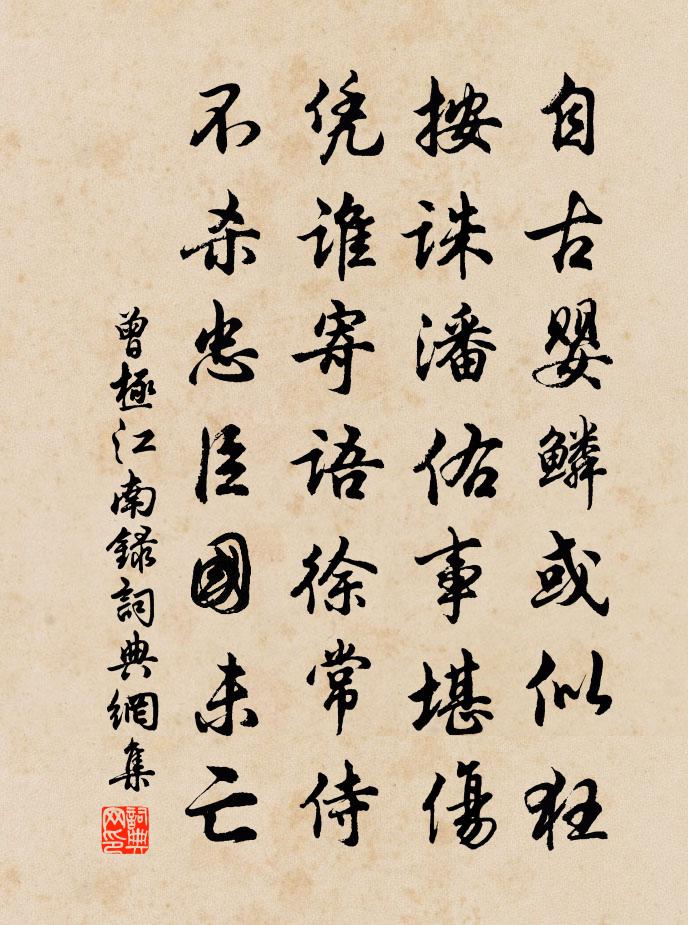 自古嬰鱗或似狂
按誅潘佑事堪傷
凭誰寄語徐常侍
不杀忠臣國未亡
曾極江南錄詞典網集
詞典网印